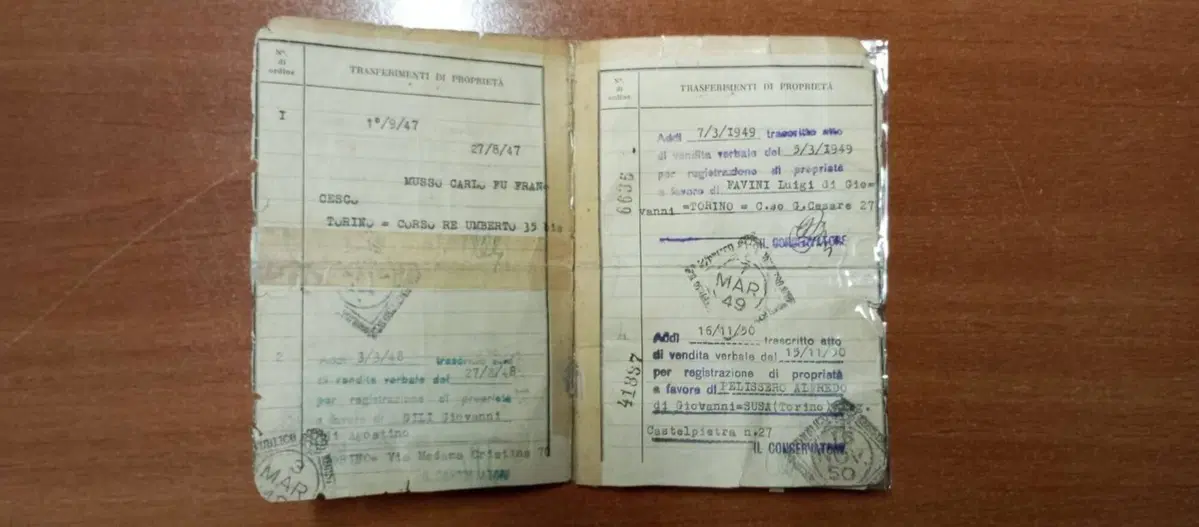 N°.
di
ordine
TRASFERIMENTI DI PROPRIETÀ
I
1°/9/47
27/8/47
MUSSO CARLO FU FRAN=
CESCO
TORINO = CORSO RE UMBERTO 35 bis
2
Addi 3/9/48 trascritto atto
di vendita verbale del 27/8/48
per registrazione di proprietà
a favore di GILI Giovanni
di Agostino
TORINO= Via Madama Cristina 70
PUBBLICO
3
MAR
N°.
di
ordine
TRASFERIMENTI DI PROPRIETÀ
6635
Addi 7/3/1949 trascritto atto
di vendita verbale del 5/3/1949
per registrazione di proprietà
a favore di FAVINI Luigi di Gio=
vanni =TORINO = C.so G.Cesare 27
IL CONSERVATORE
7
MAR
49
41887
Addi 16/11/50 trascritto atto
di vendita verbale del 15/11/50
per registrazione di proprietà
a favore di PELISSERO ALFREDO
di Giovanni=SUSA(Torino)
Castelpietra n.27
IL CONSERVATORE
50